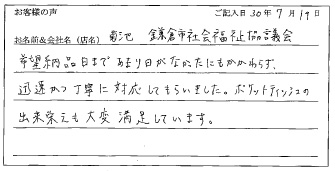 お客様の声 ご記入日 30年 7月 19日
お名前&会社名（店名） 菊池 鎌倉市社会福祉協議会
希望納品日まであまり日がなかったにもかかわらず、
迅速かつ丁寧に対応してもらいました。ポケットティッシュの
出来栄えも大変満足しています。